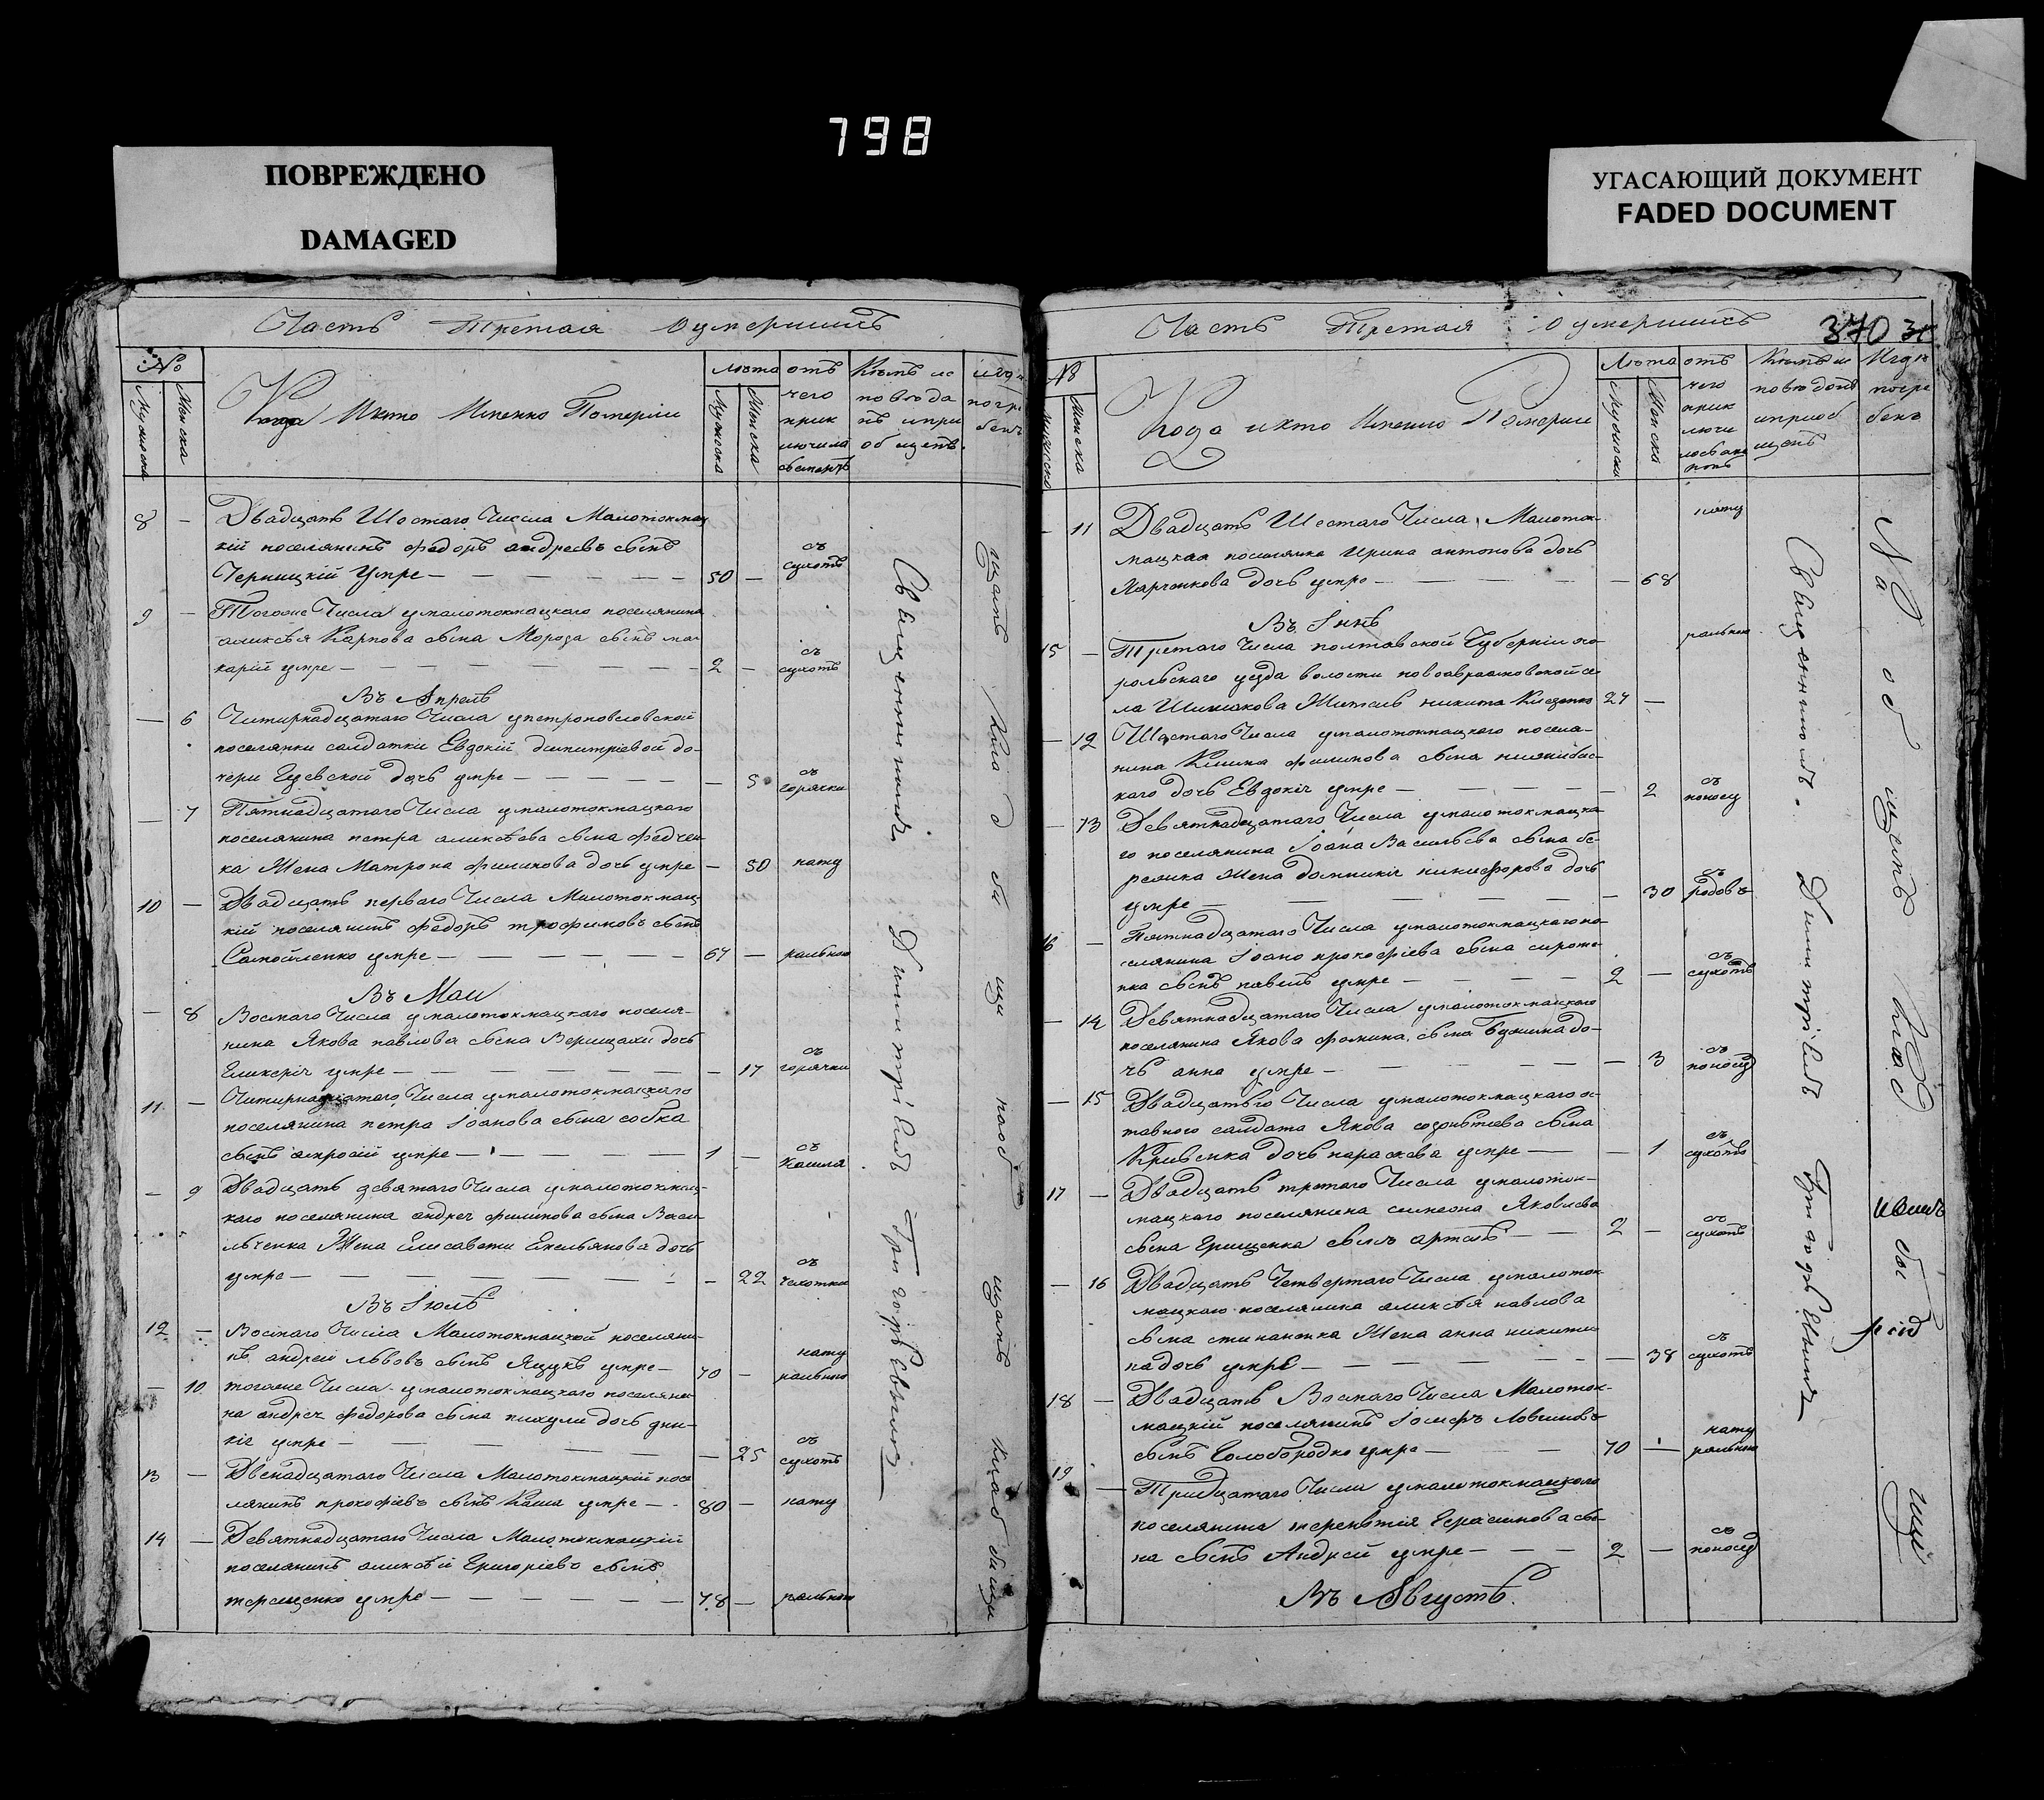 798
ПОВРЕЖДЕНО
DAMAGED
УГАСАЮЩИЙ ДОКУМЕНТ
FADED DOCUMENT
Часть Третая Оумершихъ
№
Мужеска
Женска
Когда Икто Имянно Померли
лѣта
Мужеска
Женска
отъ чего приключилась смерть
Кѣмъ исповѣданъ и приобщенъ
игдѣ погребенъ
8 — Двадцать Шостаго Числа Малотокмац
кій поселянинъ федоръ андреевъ сынъ
Черницкій Умре — 50 — съ сухотъ
9 — Тогоже Числа умалотокмацкого поселянина
аликсѣя Карпова сына Мороза сынъ ма
карій умре — 2 — съ сухотъ
Въ Апрелѣ
— 6 Читирнадцатаго Числа упетроповловской
поселянки салдатки Евдокіи димитріевой до
чери Гуевской дочь умре — 5 съ горячки
— 7 Пятнадцатаго Числа умалотокмацкаго
поселянина петра аликсѣева сына федчен
ка Жена Матрона филипова дочь умре — 50 нату
10 — Двадцать перваго Числа Малотокмац
кій поселянинъ федоръ трофимовъ сынъ
Самойленко умре — 67 — ральною
Въ Маи
— 8 Восмаго Числа умалотокмацкаго поселя
нина Якова павлова сына Верищахи дочь
Гликерія умре — 17 съ горячки
11 — Читирнадцатаго Числа умалотокмацкаго
поселянина петра Іоанова сына собка
сынъ амросій умре — 1 — съ Кашля
— 9 Двадцать девятаго Числа умалотокмац
каго поселянина андрея филипова сына Васи
льченка Жена Елисавета Емельянова дочь
умре — 22 съ чахотки
Въ Іюлѣ
12 — Восмаго Числа Малотокмацкой поселяни
нъ андрей львовъ сынъ Яцукъ умре — 70 — нату ральною
— 10 тогоже Числа умалотокмацкаго поселяни
на андрея федорова сына пихули дочь
умре — 25 съ сухотъ
13 — Двенадцатаго Числа Малотокмацкій посе
лянинъ прокофіевъ сынъ Каша умре — 80 — нату
14 — Девятнадцатаго Числа Малотокмацкій
поселянинъ аликсѣй Григоріевъ сынъ
терещенко умре — 78 — ральною
Священникомъ Димитріемъ Григорьевымъ
Часть Третая Оумершихъ
370
№
Женска
Когда икто Имянно Померли
Лѣта
Мужеска
Женска
отъ чего приклю
Кѣмъ исповѣданъ иприобщенъ
Игдѣ погребенъ
— 11 Двадцать Шестаго Числа Малоток
мацкая поселянка Ирина антонова дочь
Харченкова дочь умре — 68 нату
Въ Іюнѣ
15 — Третаго Числа полтавской Губерніи хо
рольскаго уезда волости новоаврамовской се
ла Шишакова Житель никита 27 — ральною
— 12 Шостаго Числа умалотокмацкого посела
нина филипова сына
каго дочь Евдокія умре — 2 съ поносу
— 13 Девятнадцатаго Числа умалотокмацка
го поселянина Іоана Васильева сына бе
резика Жена Домникія никифорова дочь
умре — 30 съ родовъ
16 — Пятнадцатаго Числа умалотокмацкаго по
селянина Іоано прокофіева сына сироте
нка сынъ павелъ умре — 2 — съ сухотъ
— 14 Девятнадцатаго Числа умалотокмацкаго
поселянина Якова фомина сына до
чь анна умре — 3 съ поносу
— 15 Двадцатьго Числа умалотокмацкаго о
тавного салдата Якова сына
Кривенка дочь параскева умре — 1 съ сухотъ
17 — Двадцать третаго Числа умалоток
мацкаго поселянина симеона Яковлева
сына Грищенка сынъ артемъ — 2 — съ сухотъ
— 16 Двадцать Четвертаго Числа умалоток
мацкаго поселянина аликсѣя павлова
сына степаненка Жена анна никити
на дочь умре — 38 съ сухотъ
18 — Двадцать Восмаго Числа Малоток
мацкій поселянинъ Іосифъ Логвиновъ
сынъ Голобородко умре — 70 — нату ральною
19 — Тридцатаго Числа умалотокмацкого
поселянина терентія Герасимова сы
на сынъ Андрей умре — 2 — съ поносу
Въ Августѣ
Священникомъ Димитріемъ Григорьевимъ
На общемъ